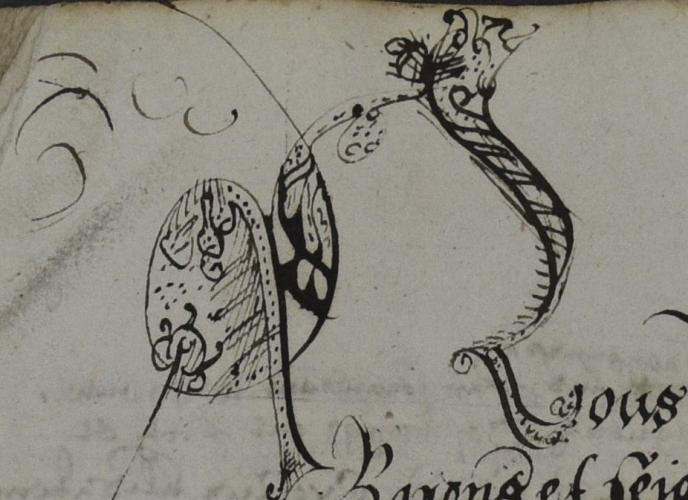 Nous
Barons et seig